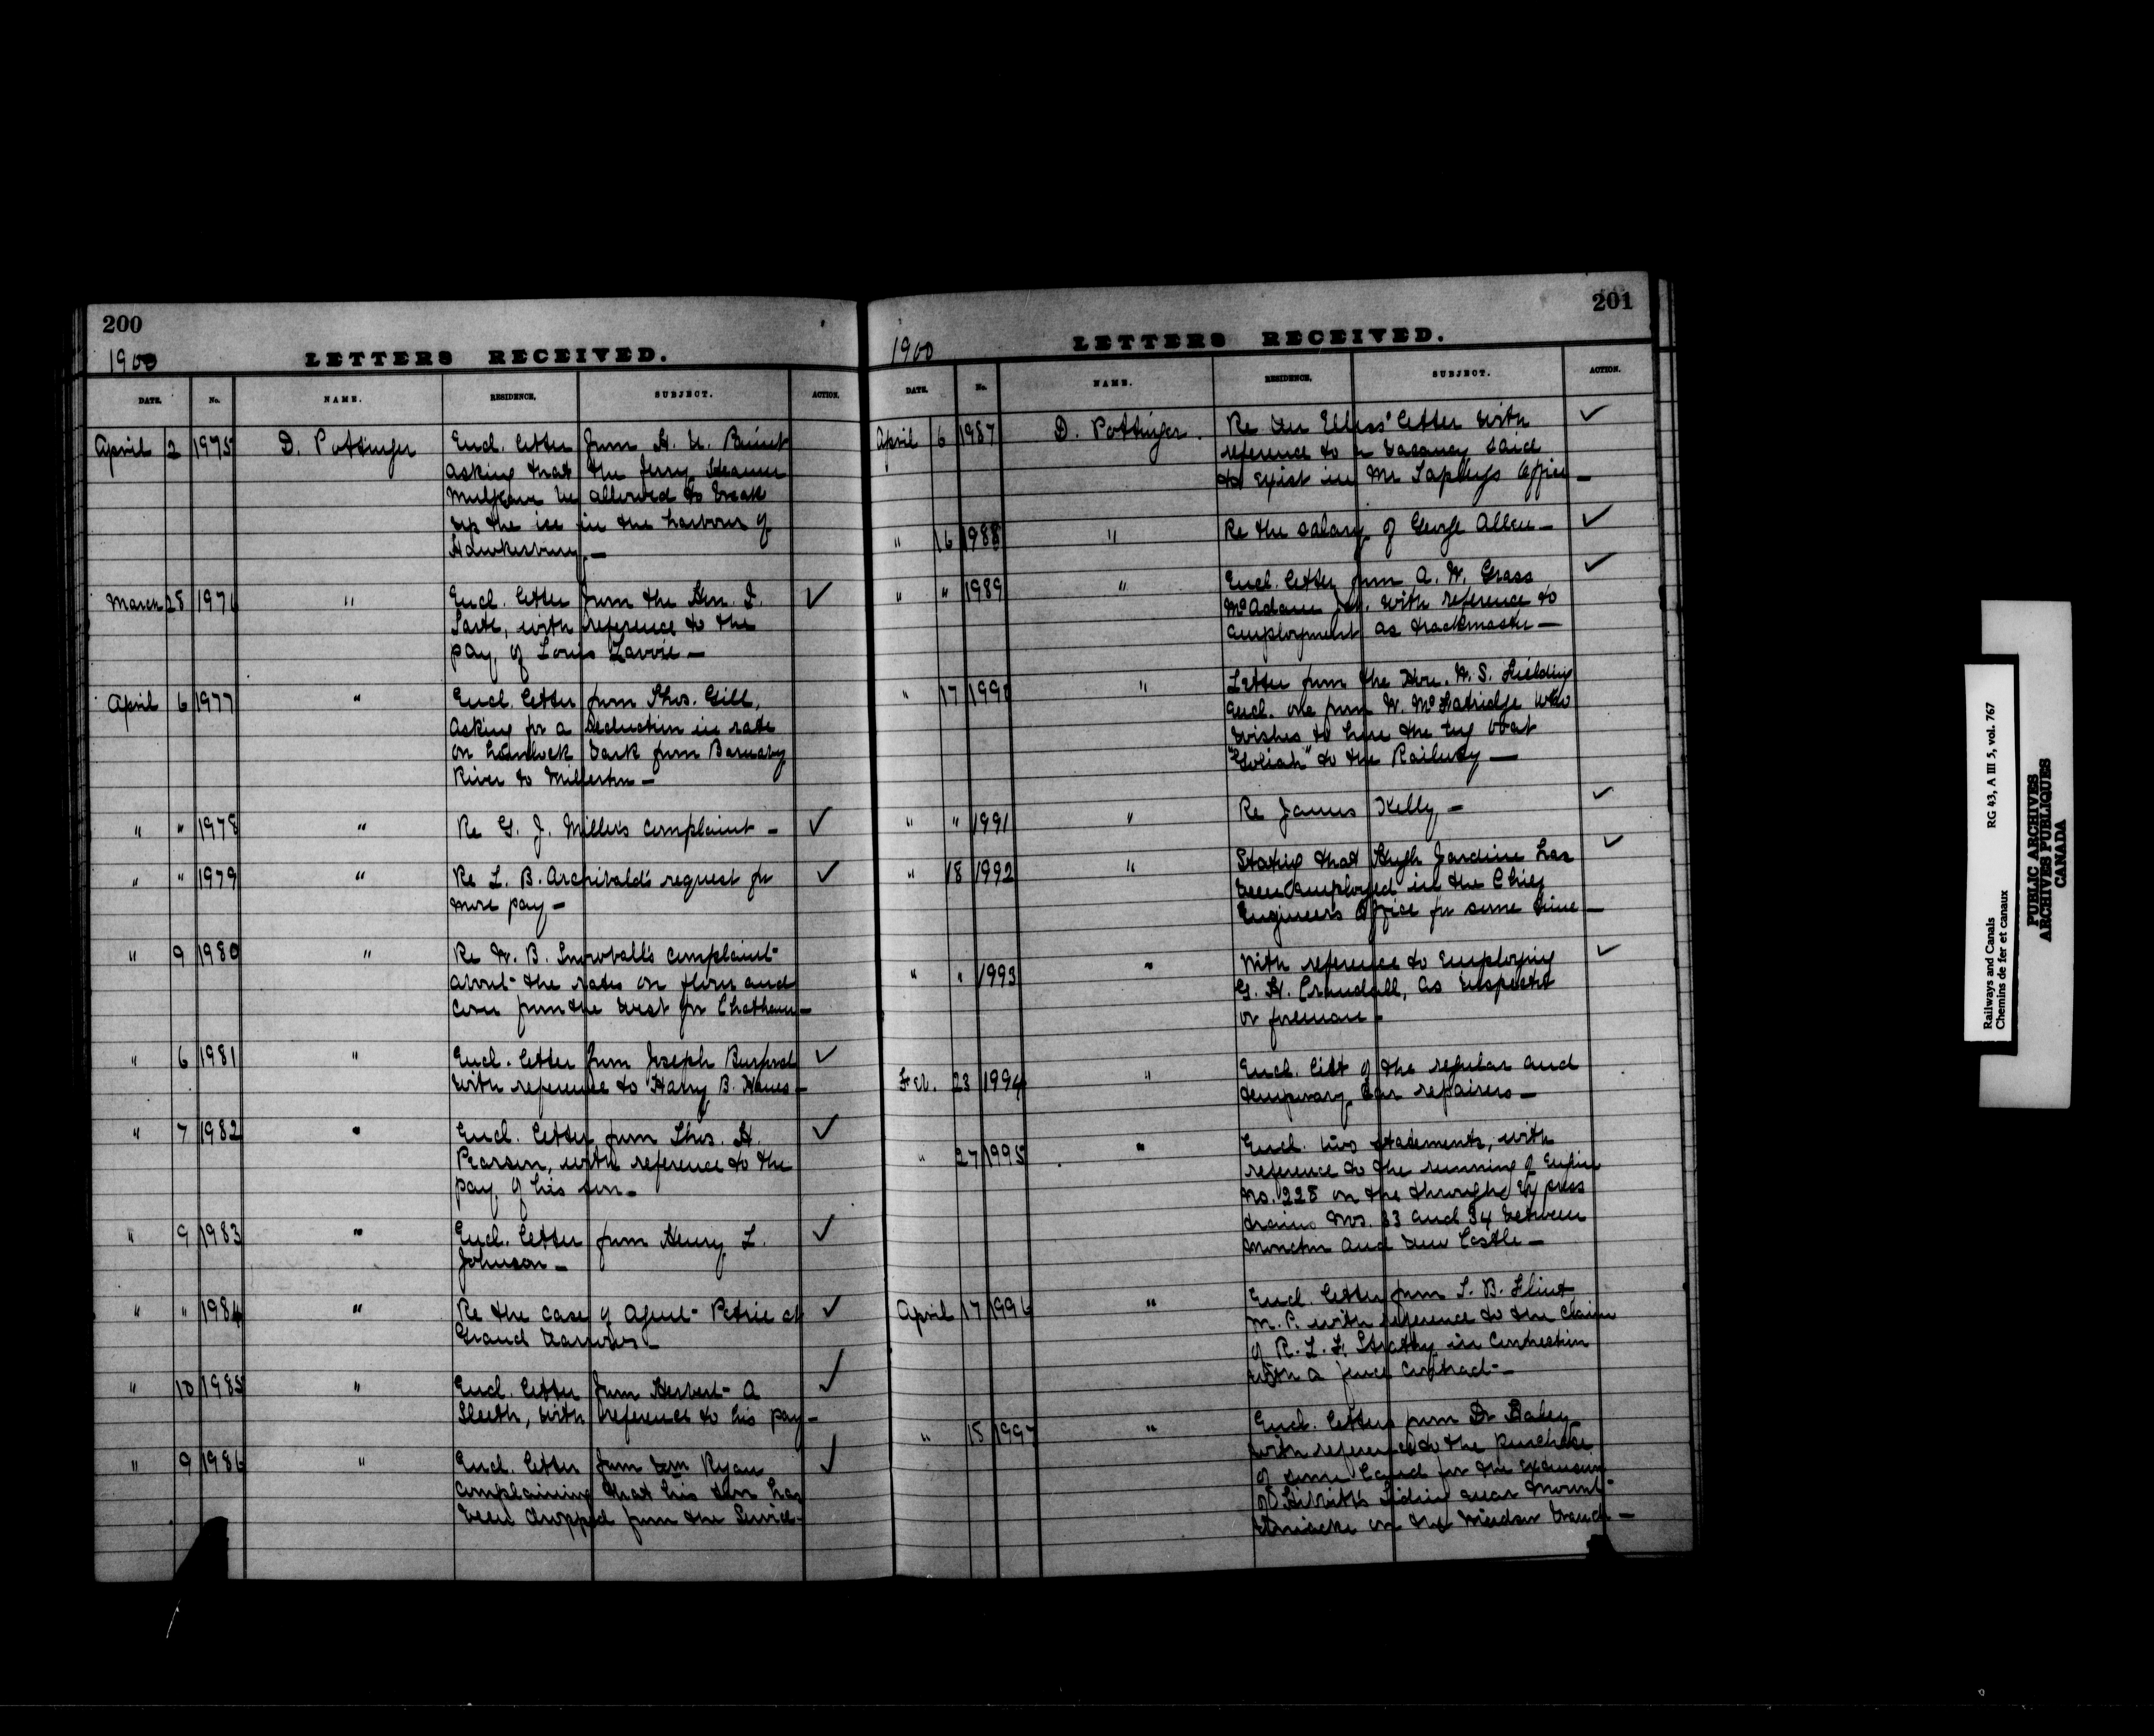 200
1900
LETTERS RECEIVED.
DATE. No. NAME. RESIDENCE. SUBJECT. ACTION.
April 2 1975 D. Pottinger Encl. letter from H. N.
asking that the ferry steamer
Mulgrave be allowed to break
up the ice in the harbour of
Hawkesbury —
March 28 1976 " Encl. letter from the Hon. I.
Tarte, with reference to the ✓
pay of Louis Lavoie —
April 6 1977 " Encl. letter from Thos. Gill,
asking for a reduction in rate
on hemlock bark from Barnaby
River to Millerton —
" " 1978 " Re G. J. Miller's complaint — ✓
" " 1979 " Re L. B. Archibald's request for ✓
more pay —
" 9 1980 " Re W. B. Snowball's complaint
about the rates on flour and
corn from the west for Chatham —
" 6 1981 " Encl. letter from Joseph ✓
with reference to Harry B. —
" 7 1982 " Encl. letter from Thos. H. ✓
Pearson, with reference to the
pay of his son —
" 9 1983 " Encl. letter from Henry L. ✓
Johnson —
" " 1984 " Re the case of Agent Petrie at ✓
Grand Narrows —
" 10 1985 " Encl. letter from Herbert A ✓
Sleeth, with reference to his pay —
" 9 1986 " Encl. letter from Wm Ryan ✓
complaining that his son has
been dropped from the Service —
201
1900
LETTERS RECEIVED.
DATE. No. NAME. RESIDENCE. SUBJECT. ACTION.
April 6 1987 D. Pottinger. Re letter with ✓
reference to a vacancy said
to exist in Mr Tapley's office —
" 16 1988 " Re the salary of George Allen — ✓
" " 1989 " Encl. letter from A. W. Grass ✓
McAdam Jct. with reference to
employment as trackmaster —
" 17 1990 " Letter from the Hon. W. S. Fielding
encl. one from W. McFatridge who
wishes to hire the tug boat
"Goliah" to the Railway —
" " 1991 " Re James Kelly — ✓
" 18 1992 " Stating that Hugh Jardine has ✓
been employed in the Chief
Engineer's Office for some time —
" " 1993 " With reference to employing ✓
G. H. Crandall, as inspector
or foreman —
Feb. 23 1994 " Encl. list of the regular and
temporary car repairers —
" 27 1995 " Encl. two statements, with
reference to the running of Engine
No. 228 on the through Express
trains Nos. 33 and 34 between
Moncton and New Castle —
April 17 1996 " Encl. letter from T. B. Flint
M.P. with reference to the claim
of R. L. F. Strathy in connection
with a fence contract —
" 18 1997 " Encl. letters from Dr
with reference to the purchase
of some land for the extension
of siding near Mount
Uniacke on the Windsor branch —
Railways and Canals
Chemins de fer et canaux
RG 43, A III 5, vol. 767
PUBLIC ARCHIVES
ARCHIVES PUBLIQUES
CANADA